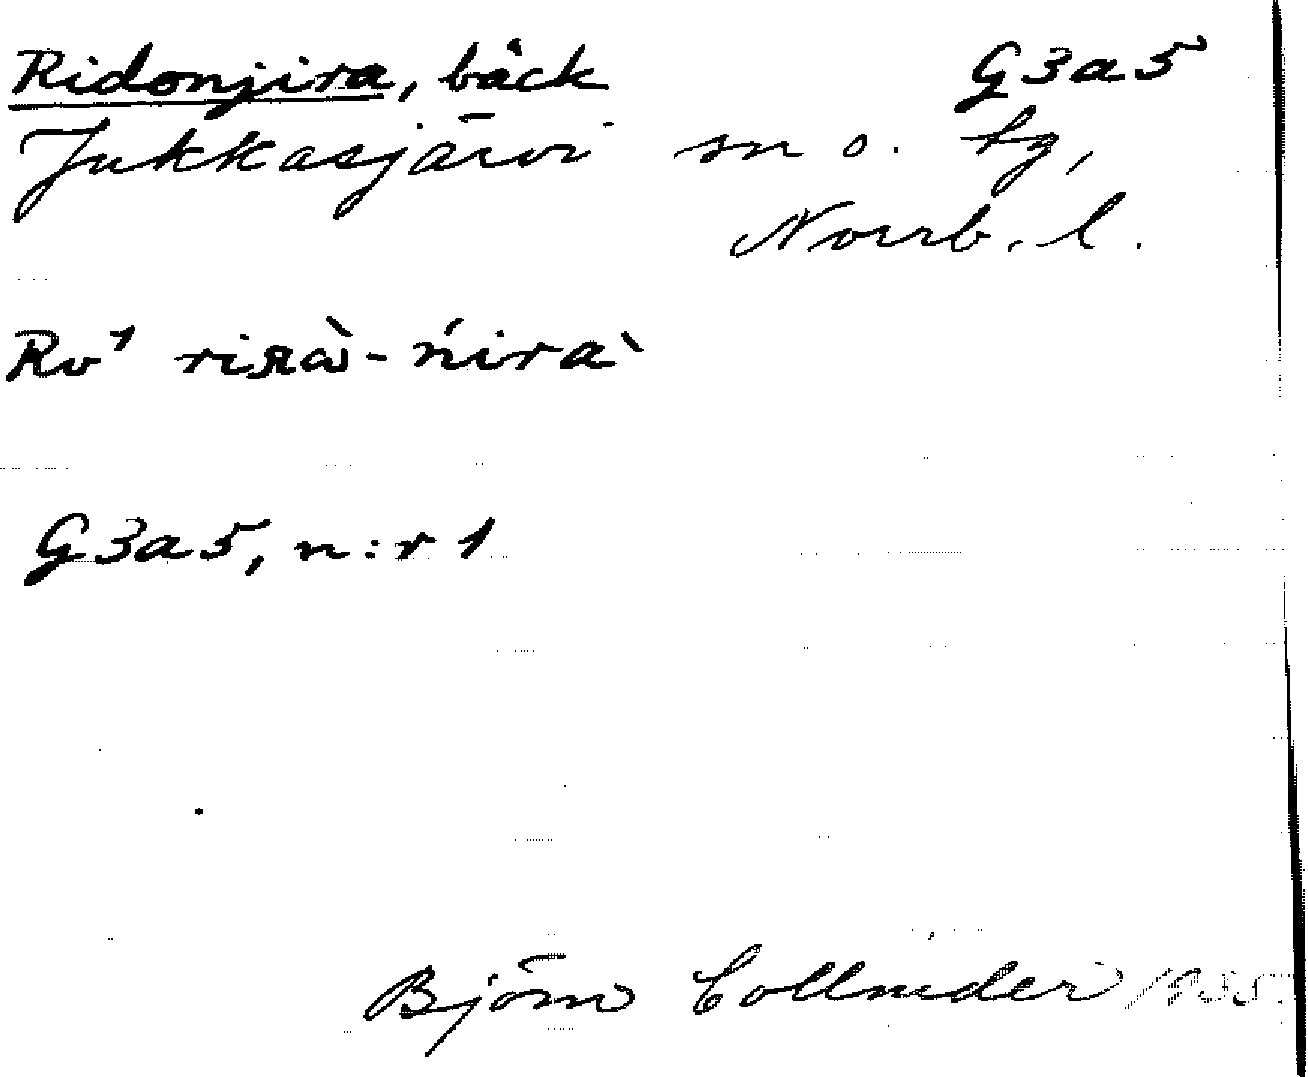 Ridonjira, bäck G3a5
Jukkasjärvi sn o. tg,
Norrb. l.
Rv¹
G3a5, n:r 1
Björn Collinder